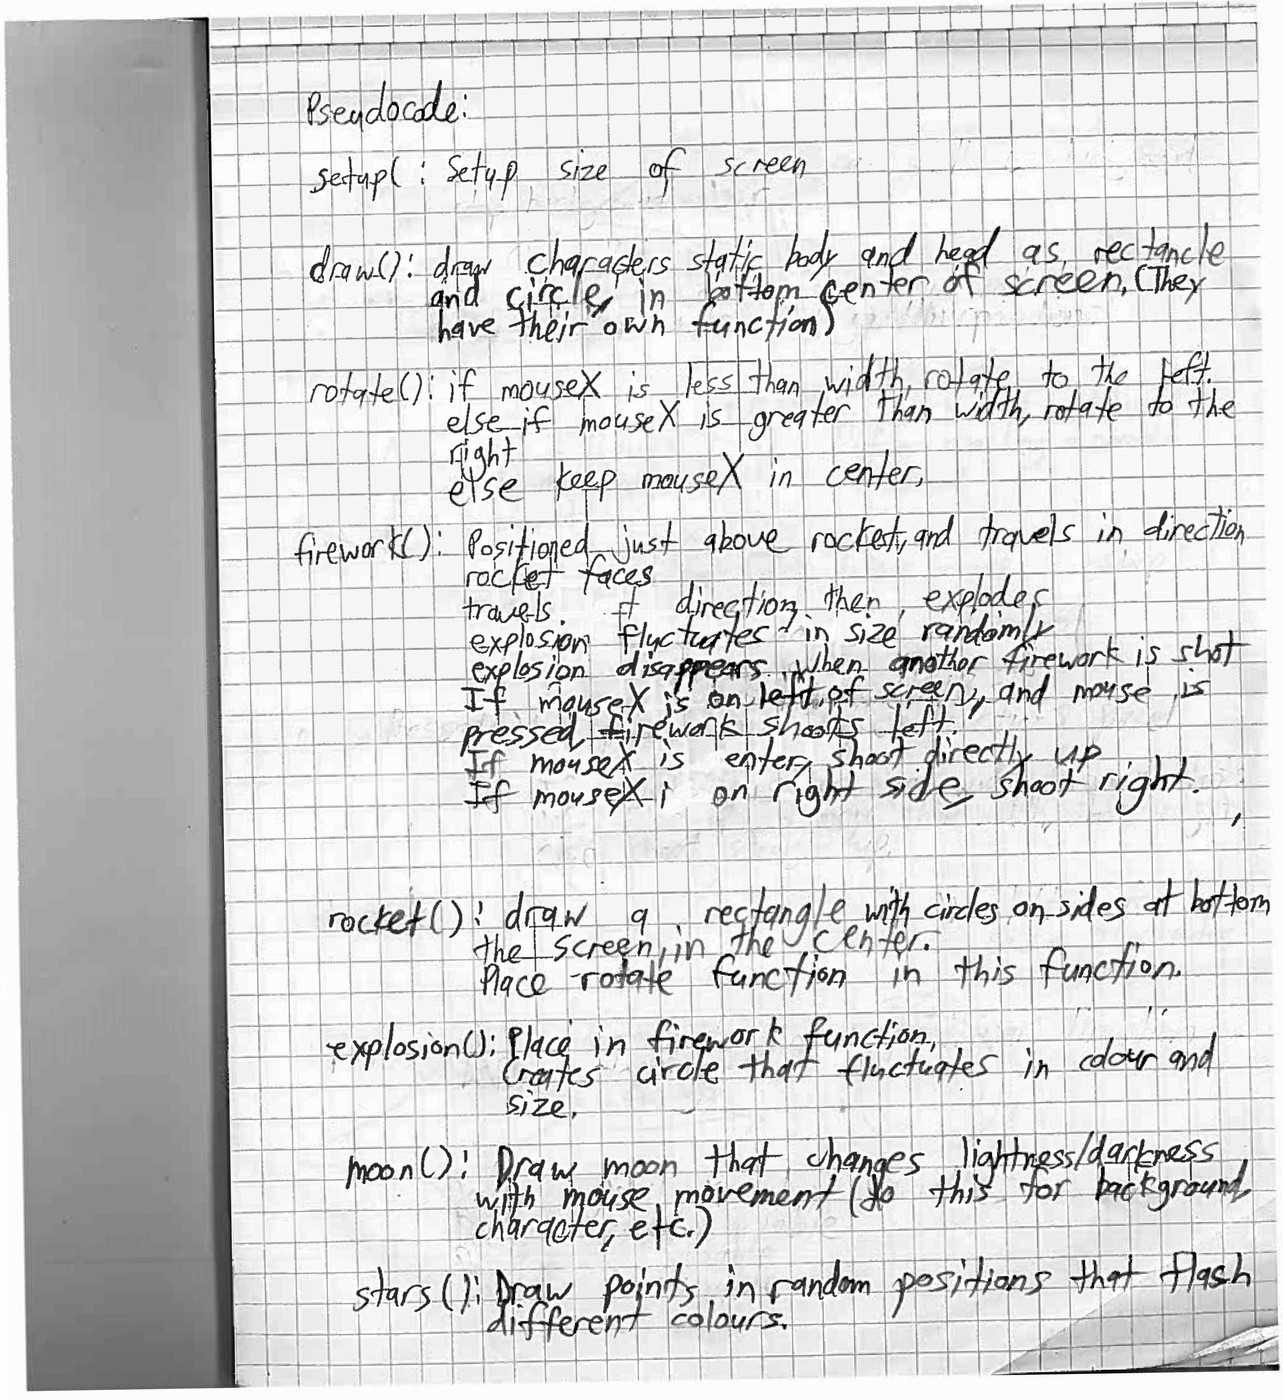 Pseudocode:
setup( : Setup size of screen
draw(): draw characters static body and head as rectancle
and circle, in bottom center of screen, (They
have their own function)
rotate(): if mouseX is less than width, rotate to the left.
else if mouseX is greater than width, rotate to the
right
else keep mouseX in center,
firework(): Positioned just above rocket, and travels in direction
rocket faces
travels direction, then explodes
explosion fluctuates in size randomly
explosion disappears when another firework is shot
If mouseX is on left of screen, and mouse is
pressed, firework shoots left.
If mouseX is enter, shoot directly up
If mouseX i on right side, shoot right.
rocket(): draw a rectangle with circles on sides at bottom
the screen, in the center.
Place rotate function in this function.
explosion(): Place in firework function,
Creates circle that fluctuates in colour and
size.
moon(): Draw moon that changes lightness/darkness
with mouse movement (do this for background,
character, etc.)
stars(): Draw points in random positions that flash
different colours.